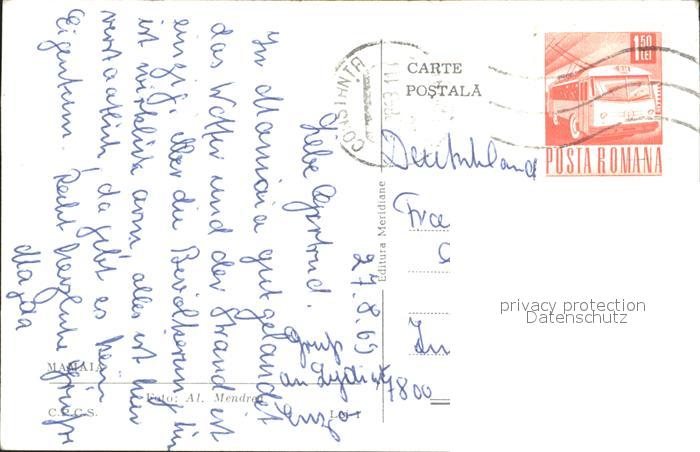 CARTE
POȘTALĂ
CONSTANȚA
1 50
lei
POSTA ROMANA
Editura Meridiane
27.8.69
Liebe Gertrud!
In Mamaia gut gelandet
das Wetter und der Strand ist
einzig, aber die Bevölkerung hier
ist wirklich arm, alles ist hier
verstaatlicht, da gibt es kein
Eigentum. Recht herzliche Grüße
Magda
Gruß
an Lydia
Deutschland
Fra
7800
MAMAIA
Foto: Al. Mendrea
C.P.C.S.
Lei 1
privacy protection
Datenschutz